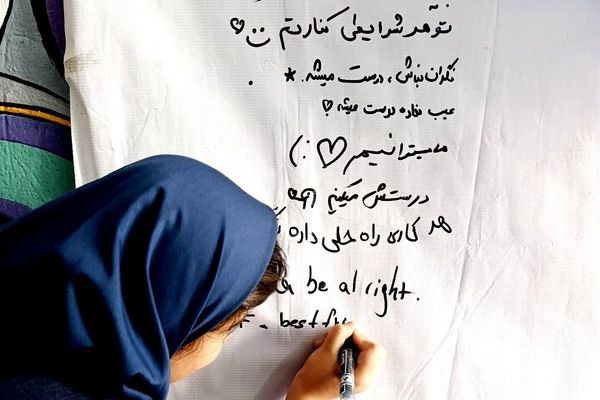 تو هر شرایطی کنارتم ♡
نگران نباش، درست میشه. *
عیب نداره درست میشه ♡
ما میتوانیم ♡ :)
درستش میکنیم
هر کاری راه حلی داره
a be al right.
best f